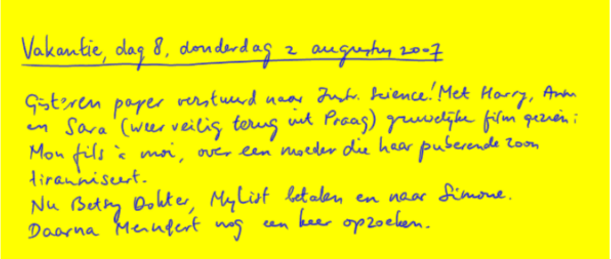 Vakantie, dag 8, donderdag 2 augustus 2007
Gisteren paper verstuurd naar Instr. Science! Met Harry, Ann
en Sara (weer veilig terug uit Praag) gruwelijke film gezien:
Mon fils à moi, over een moeder die haar puberende zoon
tiranniseert.
Nu Betsy Dokter, MyList betalen en naar Simone.
Daarna Meindert nog een keer opzoeken.